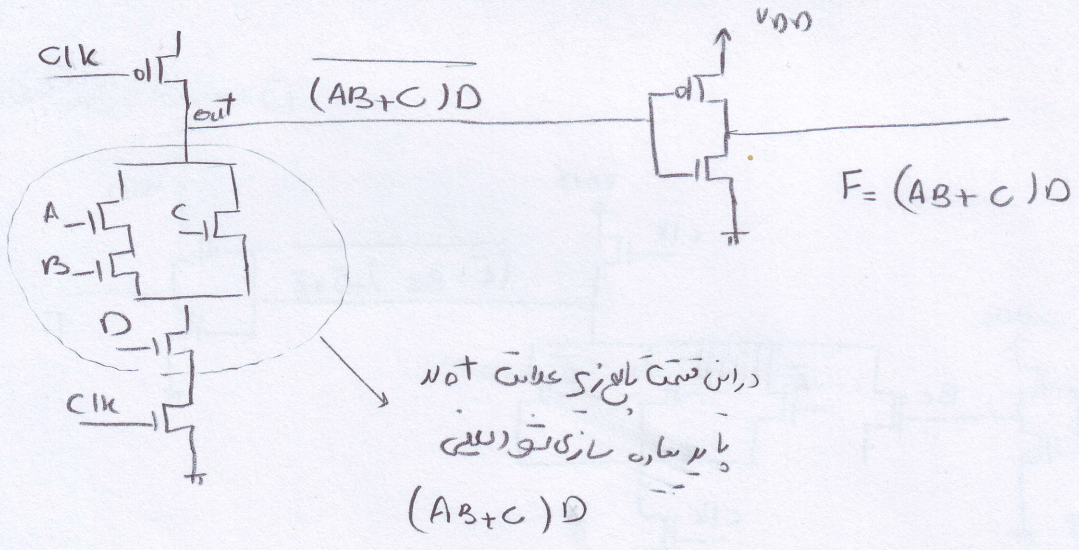 Clk
out
(AB+C)D
VDD
F= (AB+C)D
A
C
B
D
Clk
در این قسمت تابع زیر علامت not
باید پیاده سازی شود یعنی
(AB+C)D